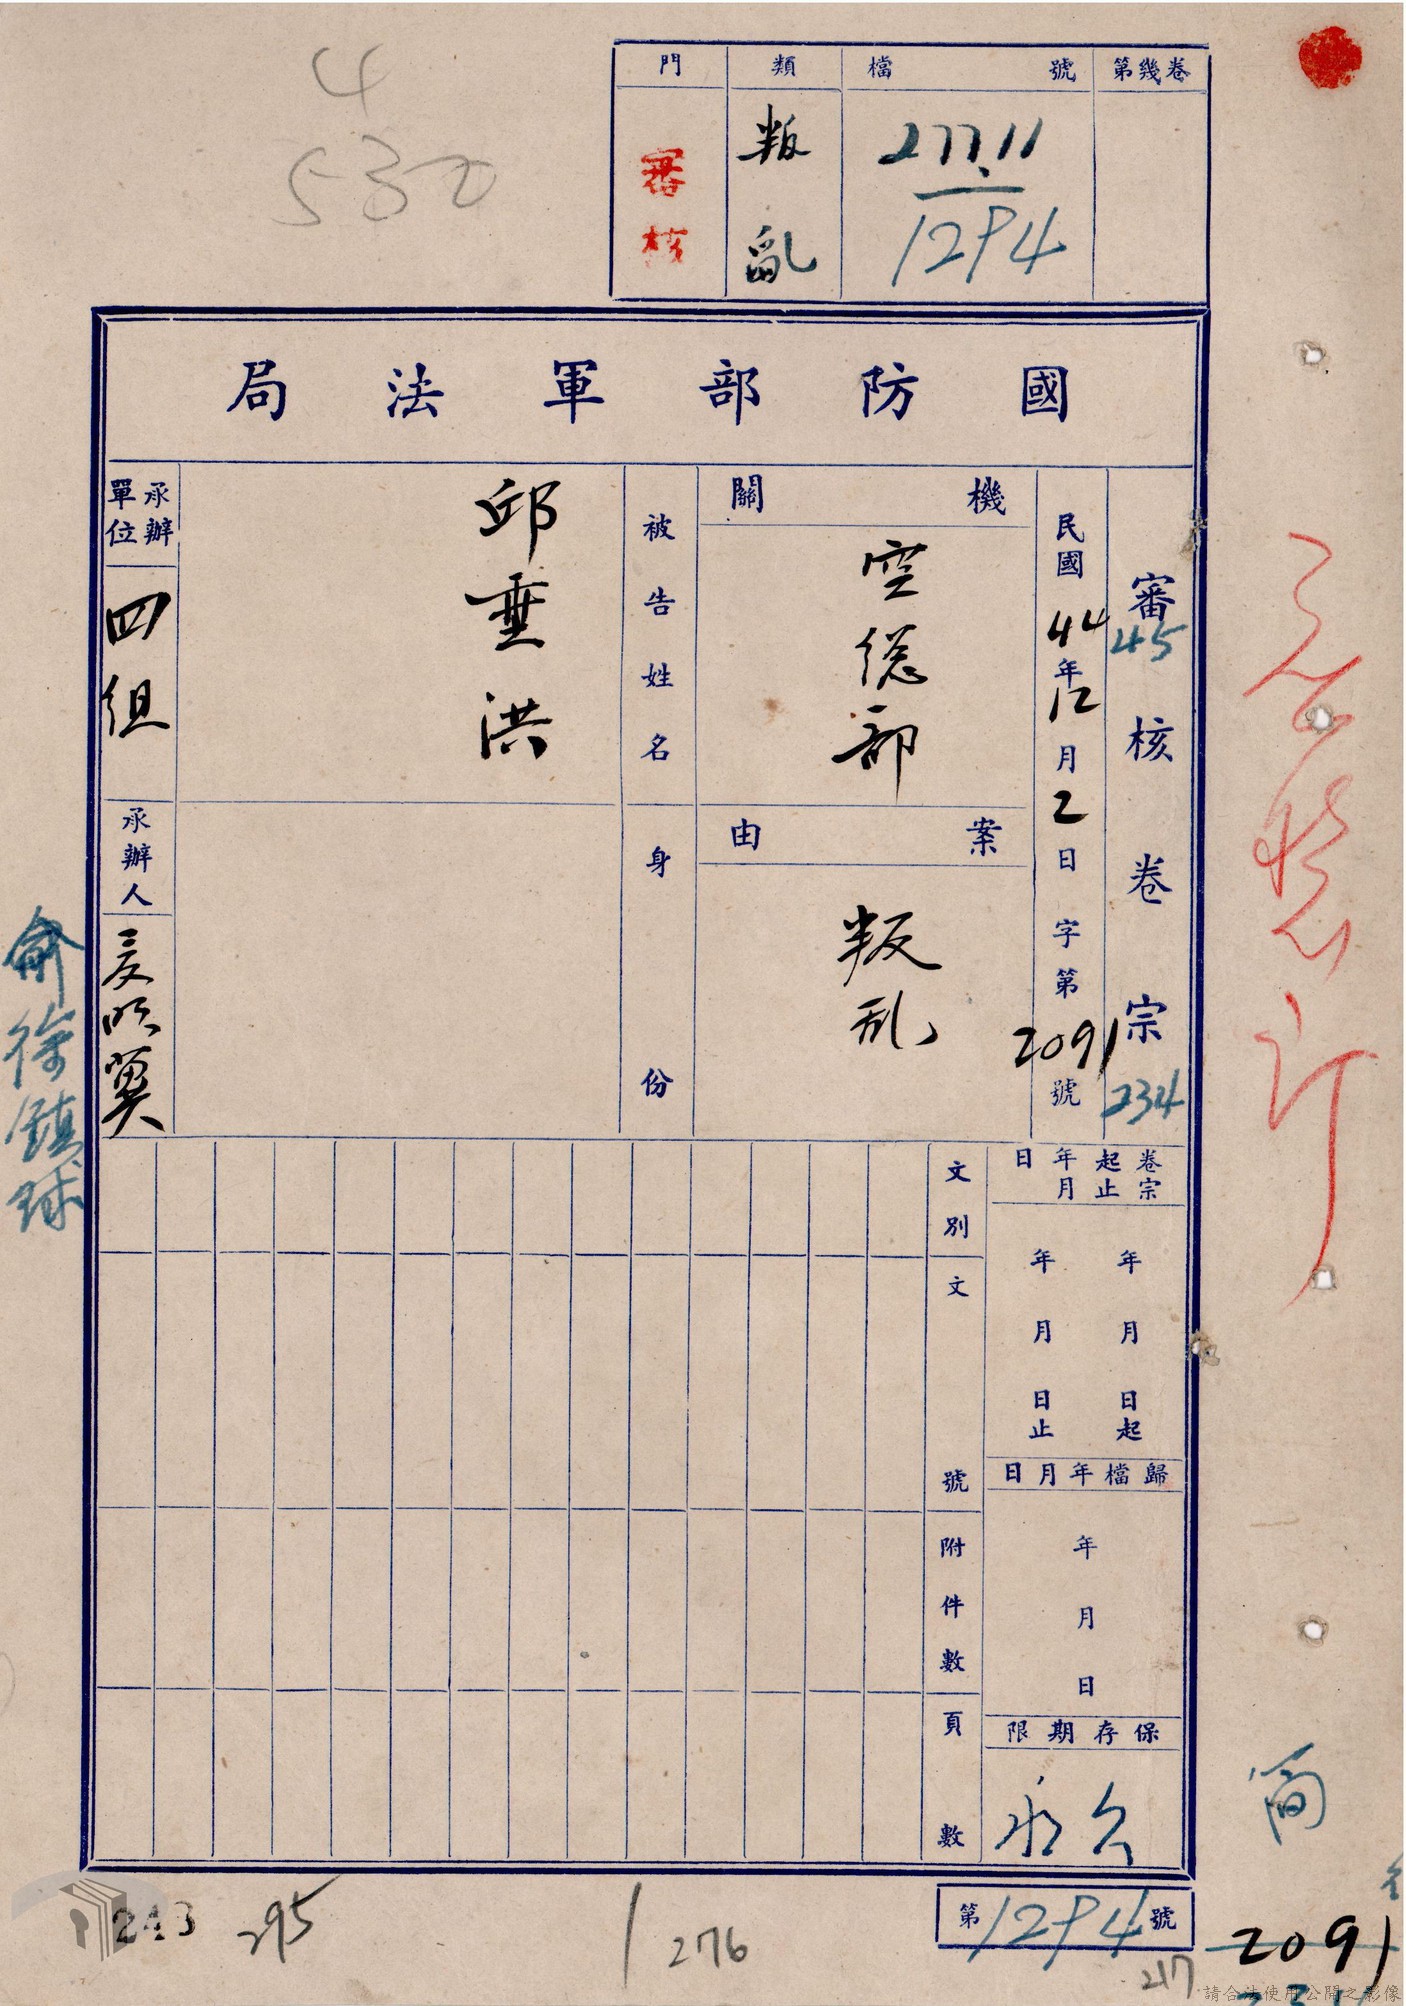 4
530
門
審核
類
叛亂
檔號
277.11
1294
第幾卷
國防部軍法局
審核卷宗
45
234
民國44年12月2日字第2091號
機關
空總部
案由
叛乱
被告姓名
邱垂洪
身份
承辦單位
四組
承辦人
俞徐鎮球
卷宗起止年月日
年月日起
年月日止
歸檔年月日
年月日
保存期限
永久
文別
文號
附件數
頁數
第1294號
243
295
276
217
2091
請合法使用公開之影像